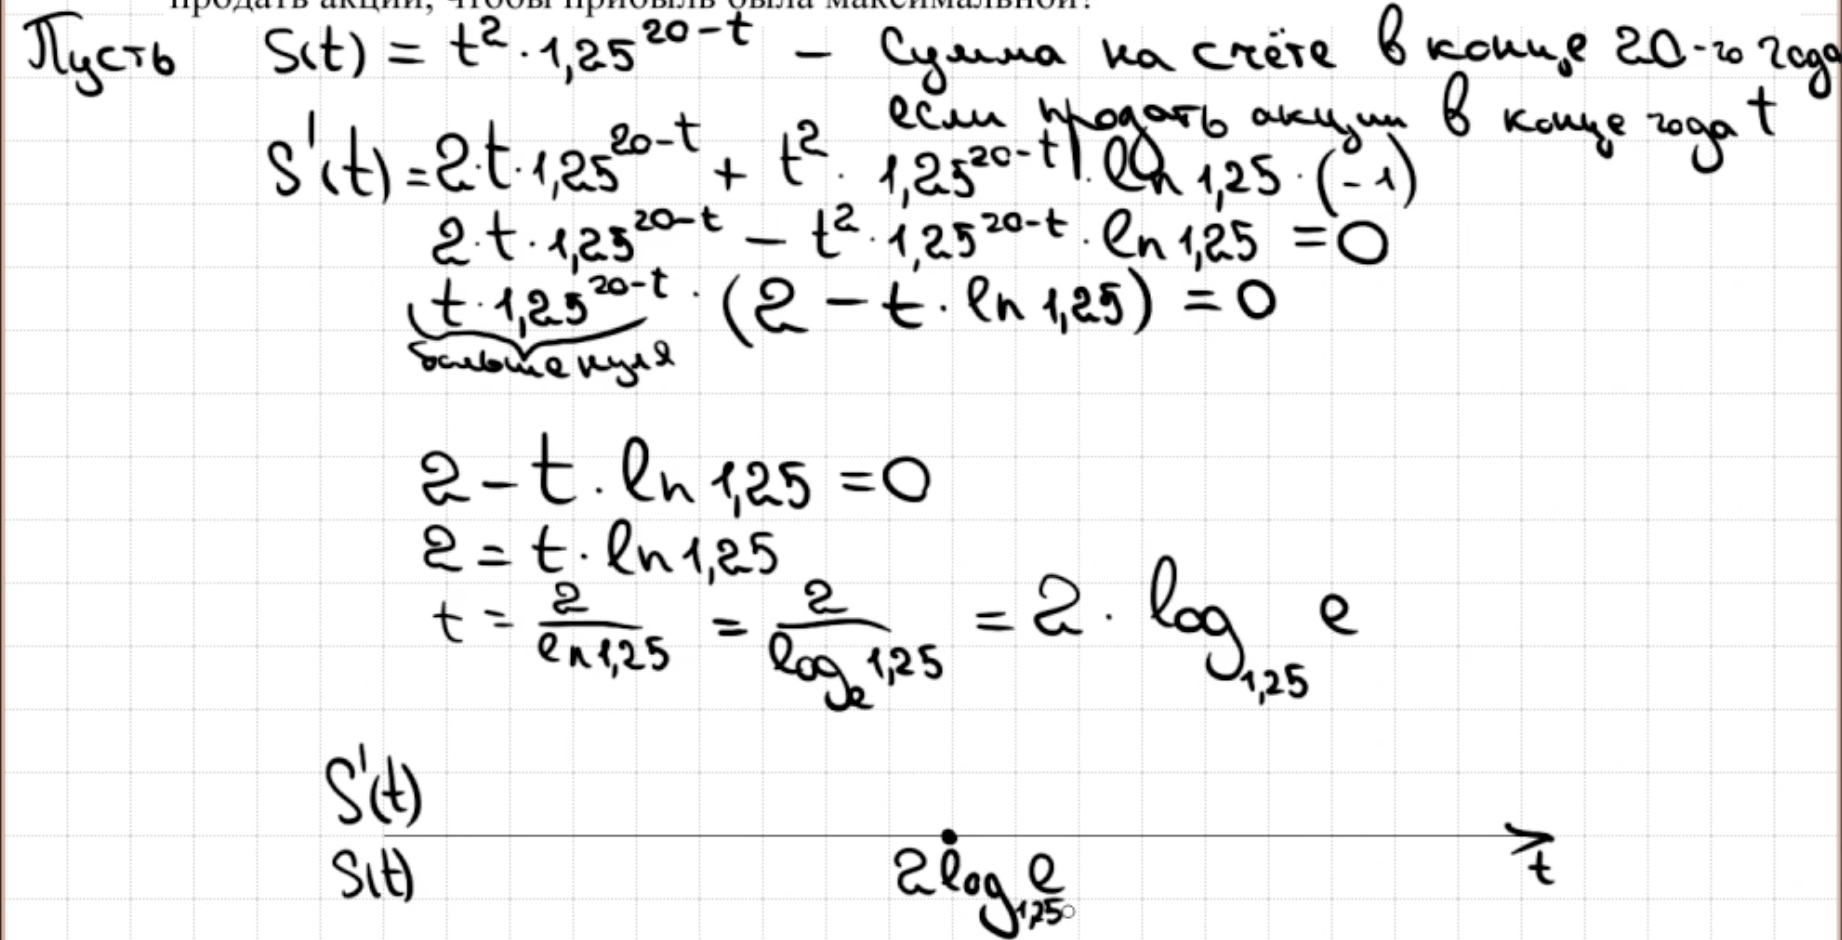 продать акции, чтобы прибыль была максимальной?
Пусть S(t) = t² · 1,25²⁰⁻ᵗ – сумма на счёте в конце 20-го года
если продать акции в конце года t
S'(t) = 2·t·1,25²⁰⁻ᵗ + t² · 1,25²⁰⁻ᵗ · ln 1,25 · (-1)
2·t·1,25²⁰⁻ᵗ – t² · 1,25²⁰⁻ᵗ · ln 1,25 = 0
t · 1,25²⁰⁻ᵗ · (2 – t · ln 1,25) = 0
больше нуля
2 – t · ln 1,25 = 0
2 = t · ln 1,25
t = 2/ln 1,25 = 2/logₑ 1,25 = 2 · log_{1,25} e
S'(t)
S(t) 2 log_{1,25} e t